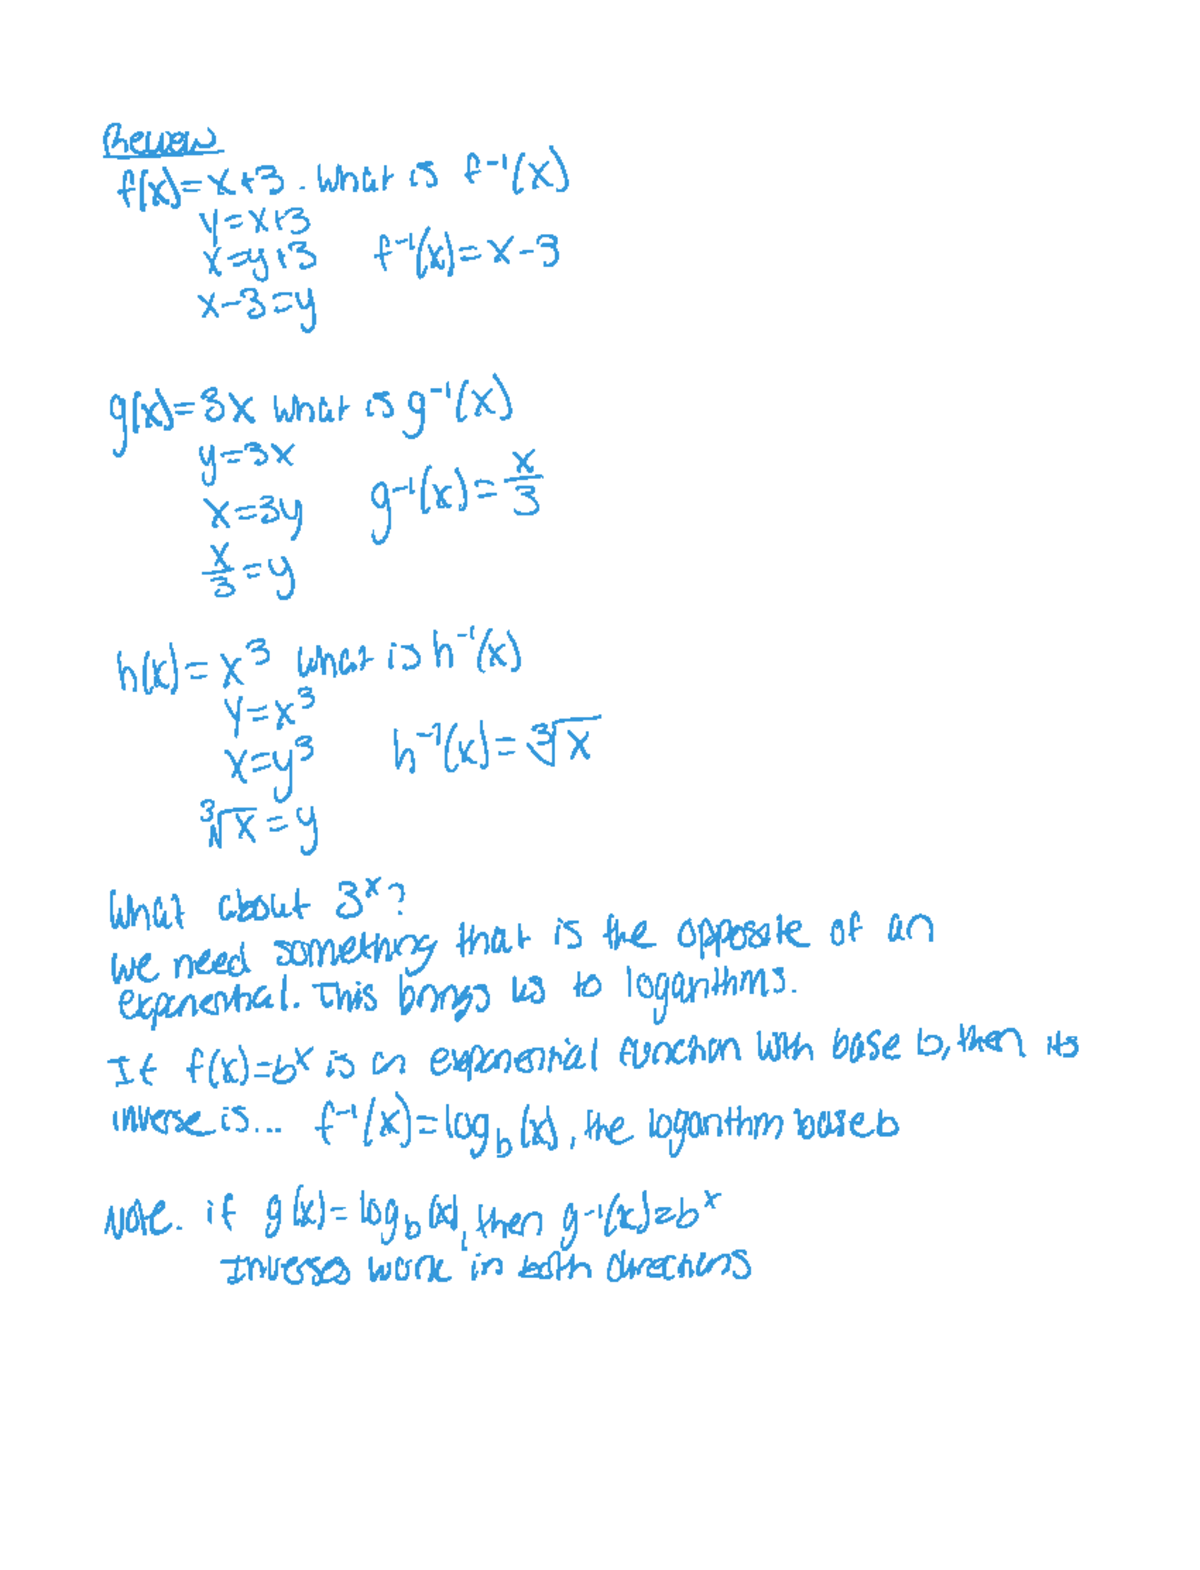 Review
f(x)=x+3. What is f⁻¹(x)
y=x+3
x=y+3
x-3=y
f⁻¹(x)=x-3
g(x)=3x what is g⁻¹(x)
y=3x
x=3y
x/3=y
g⁻¹(x)=x/3
h(x)=x³ what is h⁻¹(x)
y=x³
x=y³
∛x=y
h⁻¹(x)=∛x
What about 3ˣ?
we need something that is the opposite of an
exponential. This brings us to logarithms.
If f(x)=bˣ is an exponential function with base b, then its
inverse is... f⁻¹(x)=log_b(x), the logarithm base b
Note. if g(x)=log_b(x), then g⁻¹(x)=bˣ
Inverses work in both directions